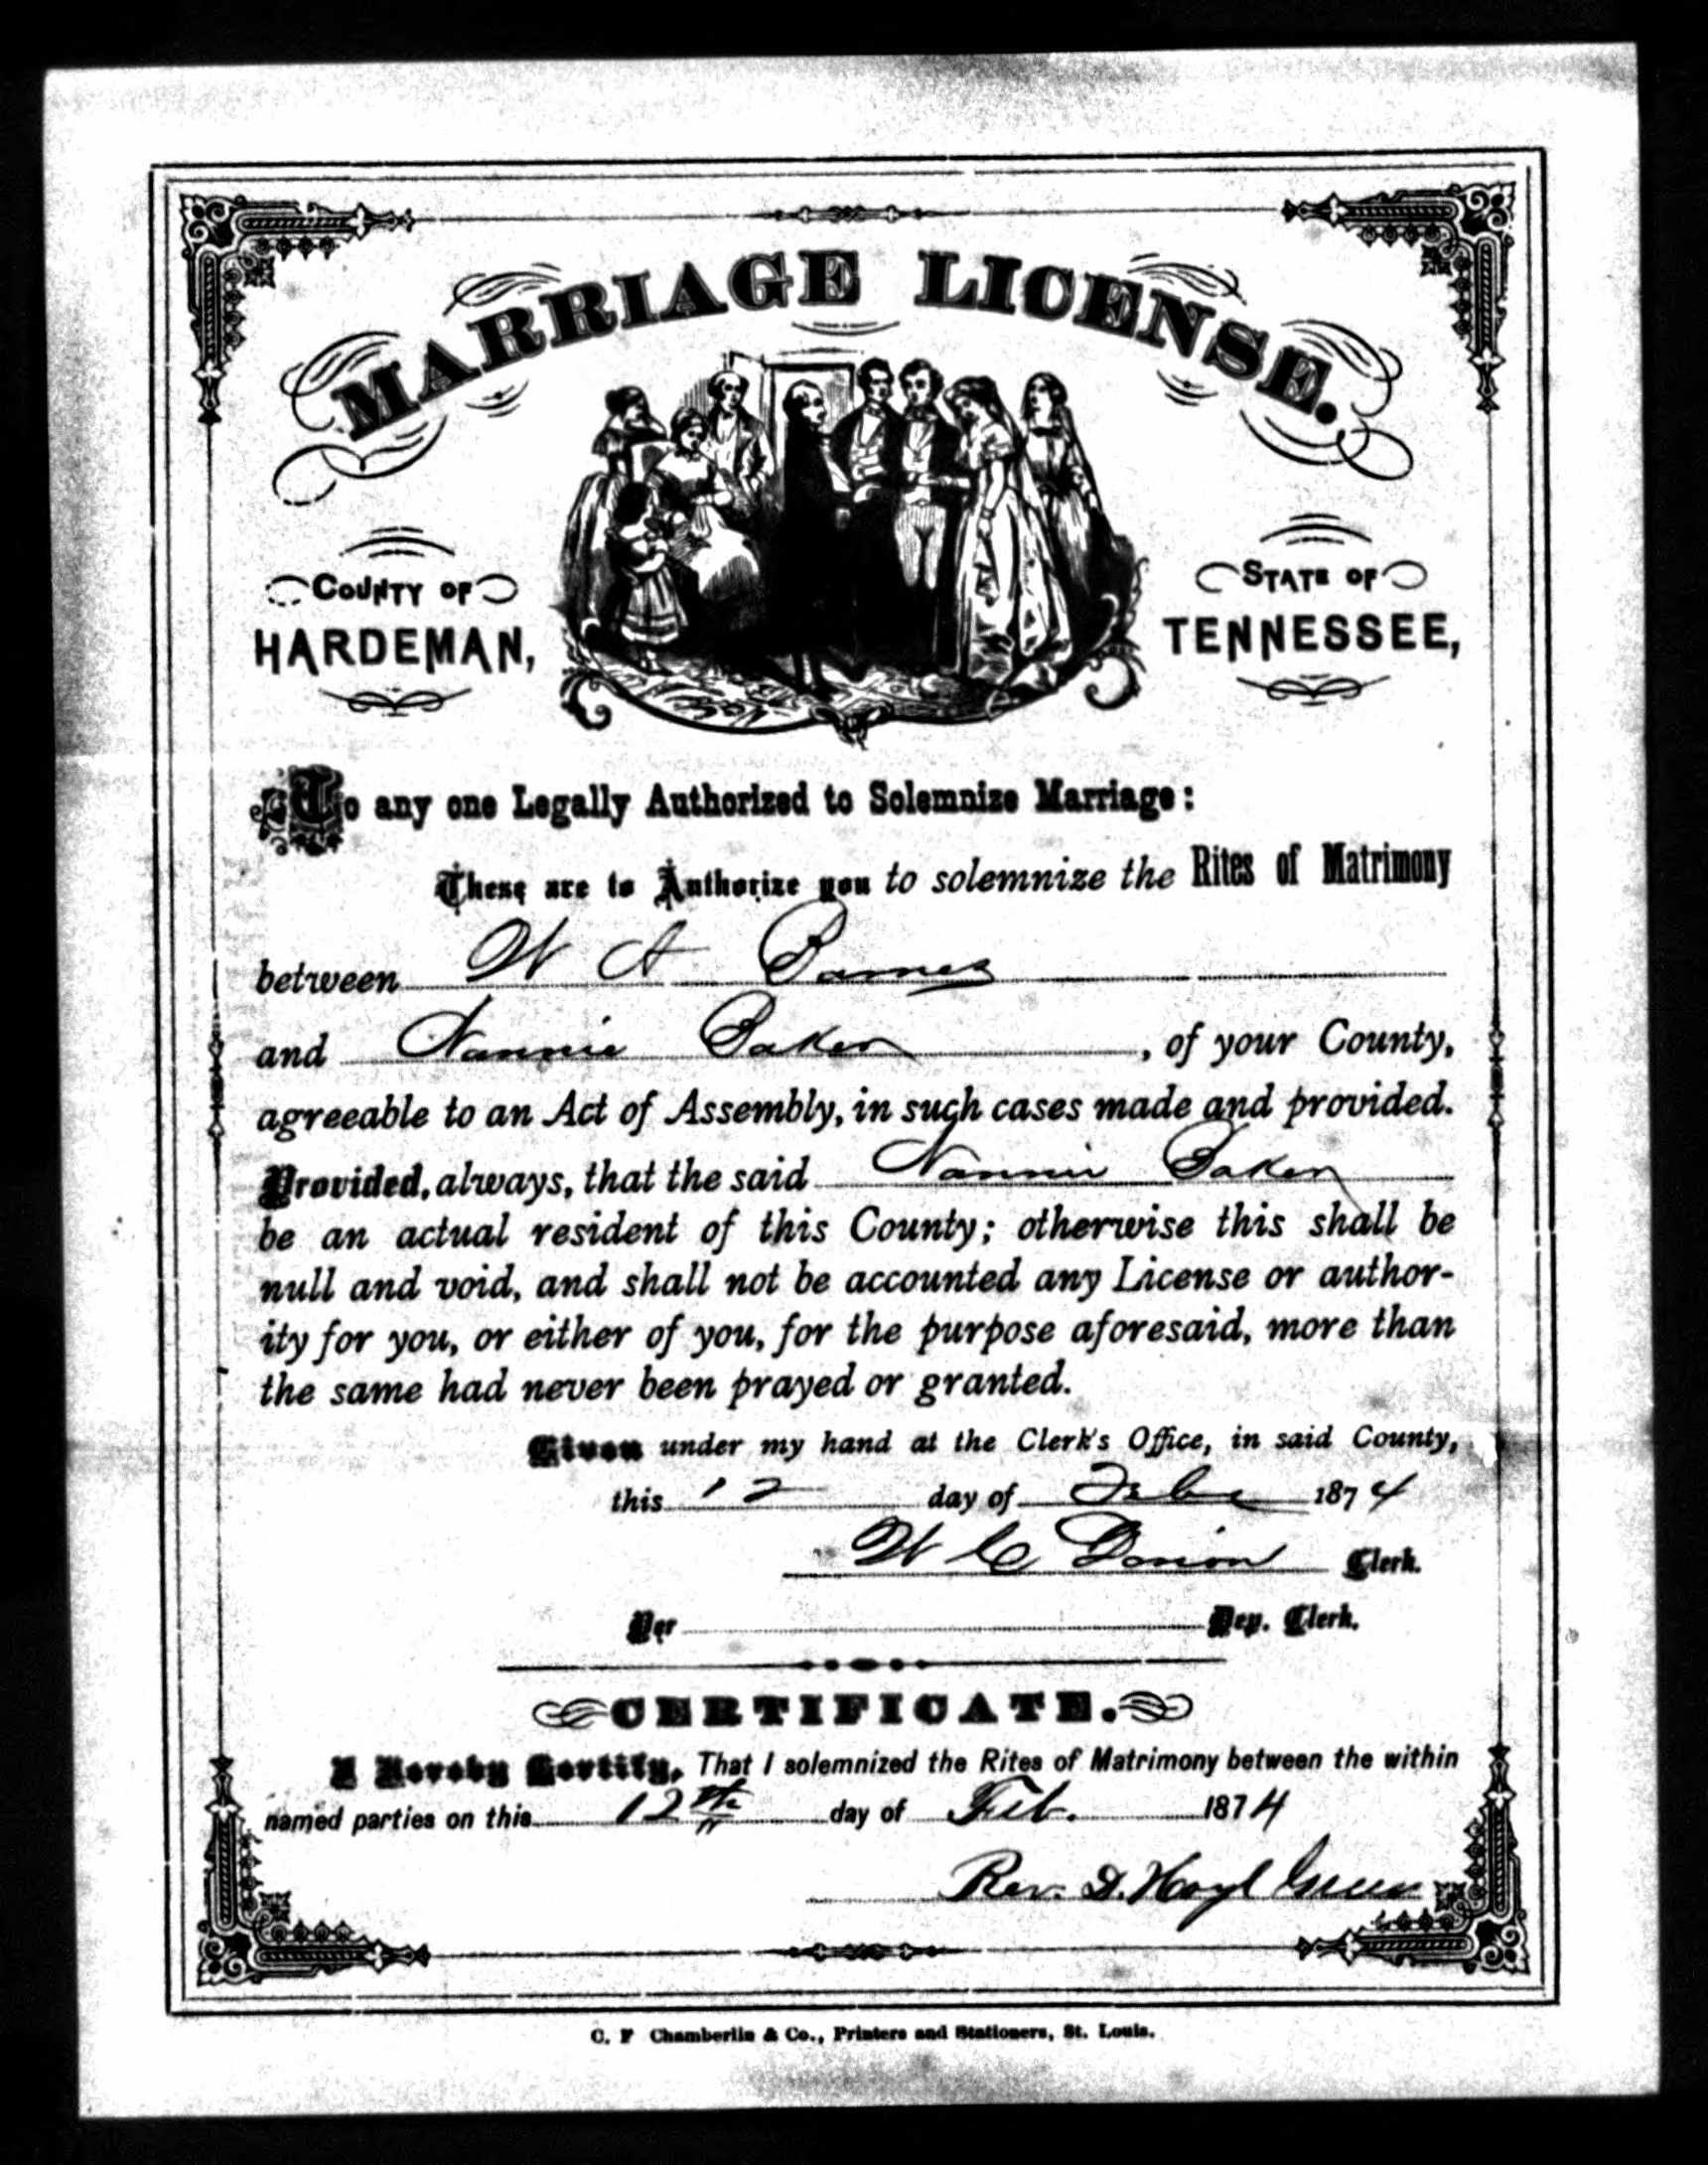 MARRIAGE LICENSE.
COUNTY OF
HARDEMAN,
STATE OF
TENNESSEE,
To any one Legally Authorized to Solemnize Marriage:
These are to Authorize you to solemnize the Rites of Matrimony
between W A Barnes
and Nannie Baker, of your County,
agreeable to an Act of Assembly, in such cases made and provided.
Provided, always, that the said Nannie Baker
be an actual resident of this County; otherwise this shall be
null and void, and shall not be accounted any License or author-
ity for you, or either of you, for the purpose aforesaid, more than
the same had never been prayed or granted.
Given under my hand at the Clerk's Office, in said County,
this 12 day of 1874
W C Clerk.
Per Dep. Clerk.
CERTIFICATE.
I Hereby Certify, That I solemnized the Rites of Matrimony between the within
named parties on this 12th day of Feb. 1874
Rev. D.
C. F Chamberlin & Co., Printers and Stationers, St. Louis.